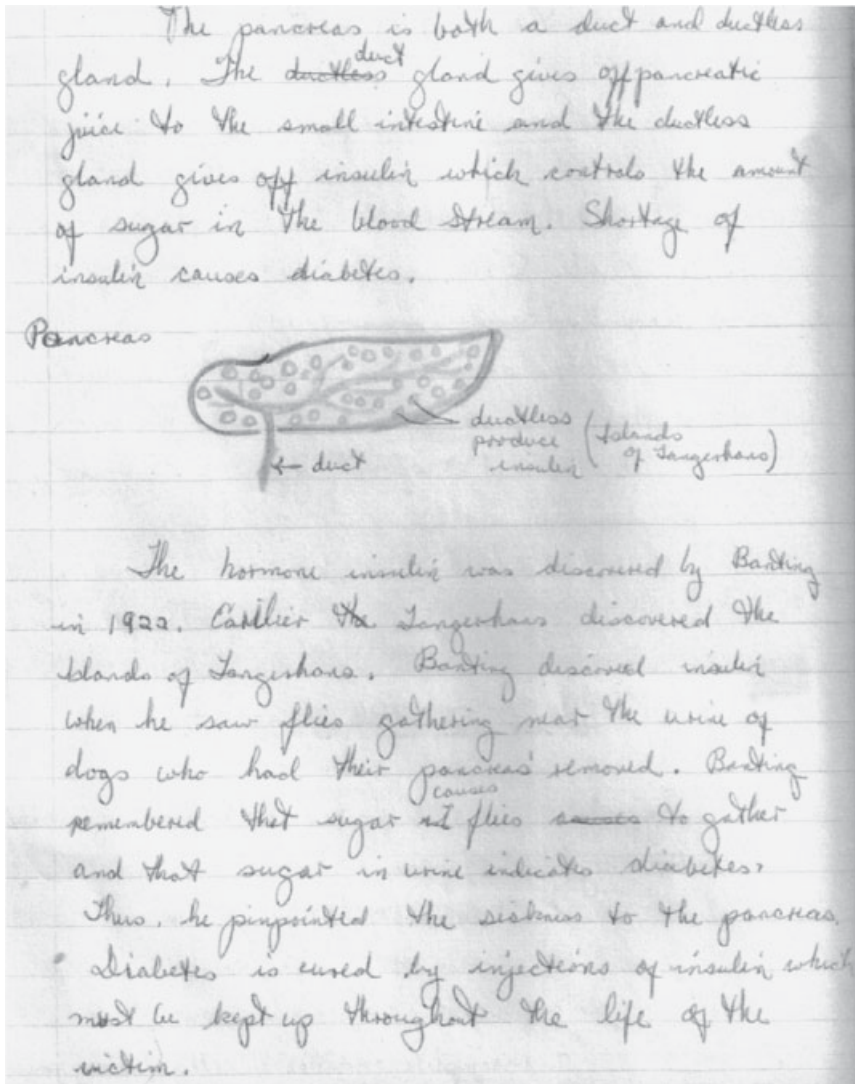 The pancreas is both a duct and ductless
gland. The ductless duct gland gives off pancreatic
juice to the small intestine and the ductless
gland gives off insulin which controls the amount
of sugar in the blood stream. Shortage of
insulin causes diabetes.
Pancreas
ductless
produce
insulin
(Islands
of Langerhans)
← duct
The hormone insulin was discovered by Banting
in 1922. Earlier the Langerhans discovered the
Islands of Langerhans. Banting discoveed insulin
when he saw flies gathering near the urine of
dogs who had their pancreas' removed. Banting
remembered that sugar causes flies causes to gather
and that sugar in urine indicates diabetes.
Thus, he pinpointed the sickness to the pancreas.
Diabetes is cured by injections of insulin which
must be kept up throughout the life of the
victim.